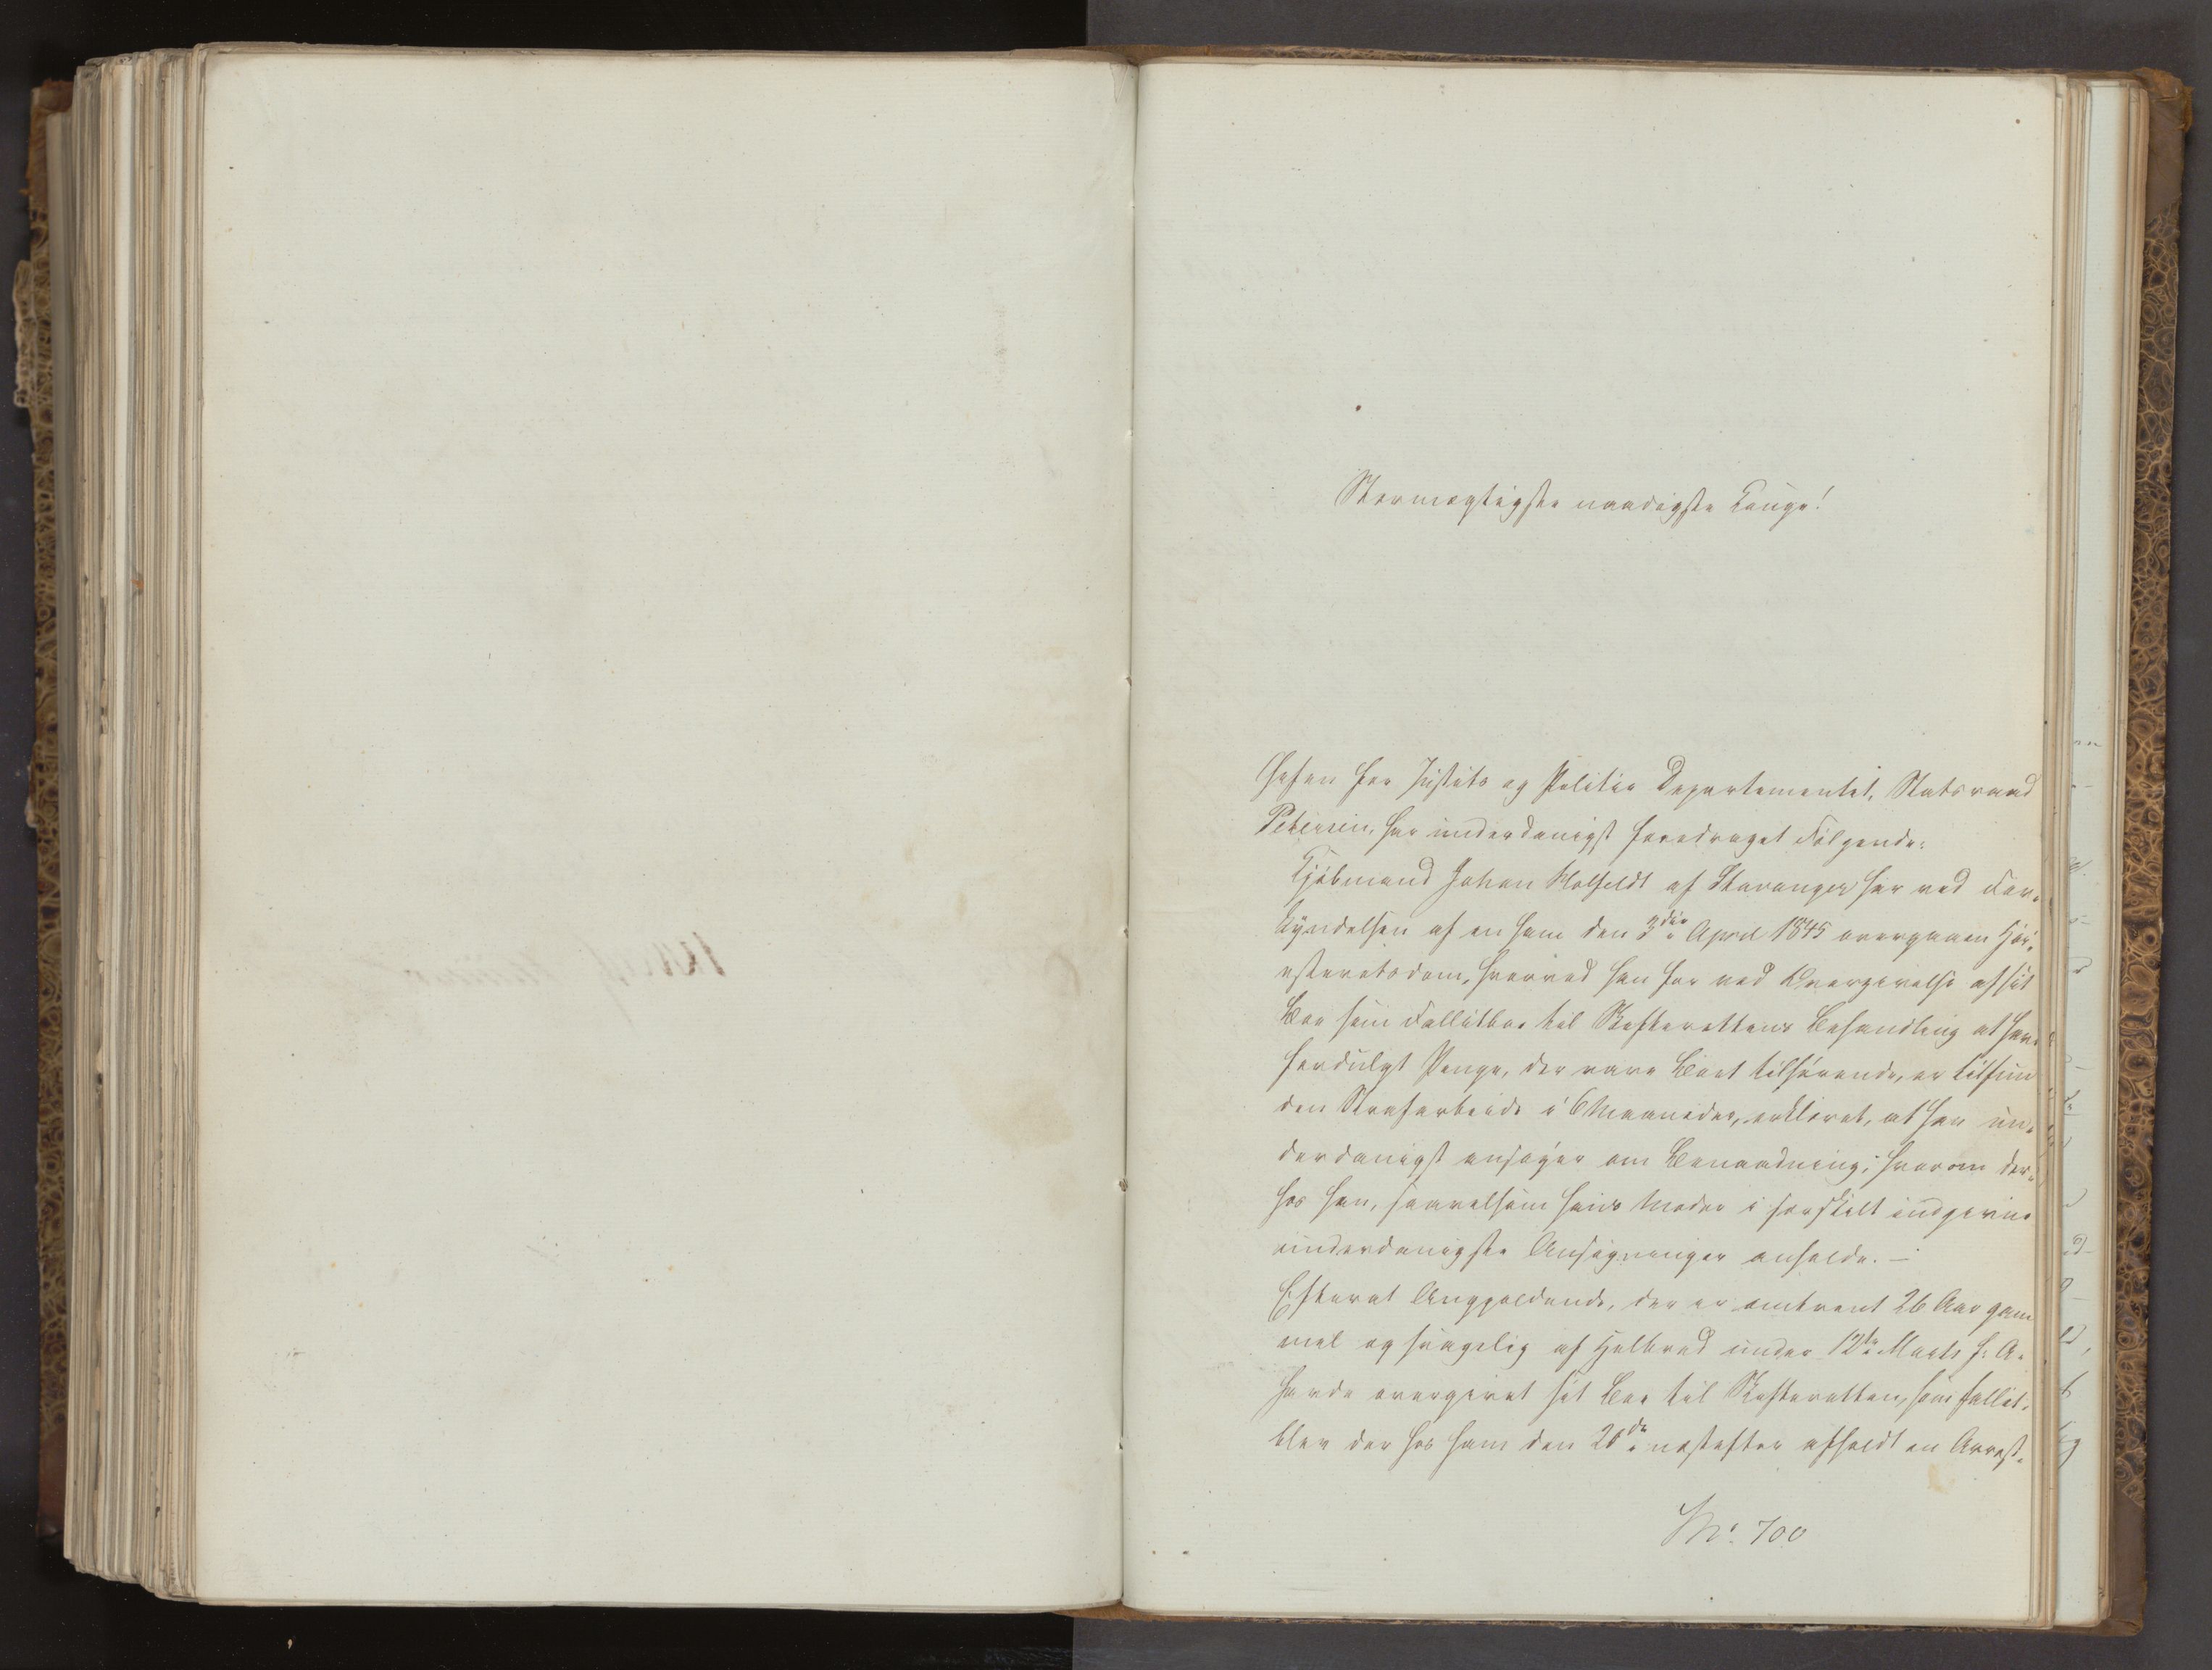 Stormægtigste naadigste Konge!
Chefen for Justits og Politie Departementet, Statsraad
Petersen, har underdanigst foredraget Følgende:
Kjøbmand Johan Holfeldt af Stavanger har ved For-
kyndelsen af en ham den 3die April 1845 overgaaen Høi-
esteretsdom, hvorved han for ved Overgivelse af sit
Boe som Fallitboe til Skifterettens Behandling at have
fordulgt Penge, der vare Boet tilhørende, er tilfun
den Strafarbeide i 6 Maaneder, erklæret, at han un-
derdanigst ansøger om Benaadning; hvorom der-
hos han, saavelsom hans Moder i særskilt indgivne
underdanigste Ansøgninger anholde. —
Efterat Angjældende, der er omtrent 26 Aar gam
mel og svagelig af Helbred under 12te Marts f: A.
havde overgivet sit Boe til Skifteretten, som fallit,
blev der hos ham den 20de næstefter afholdt en Arrest-
No. 700